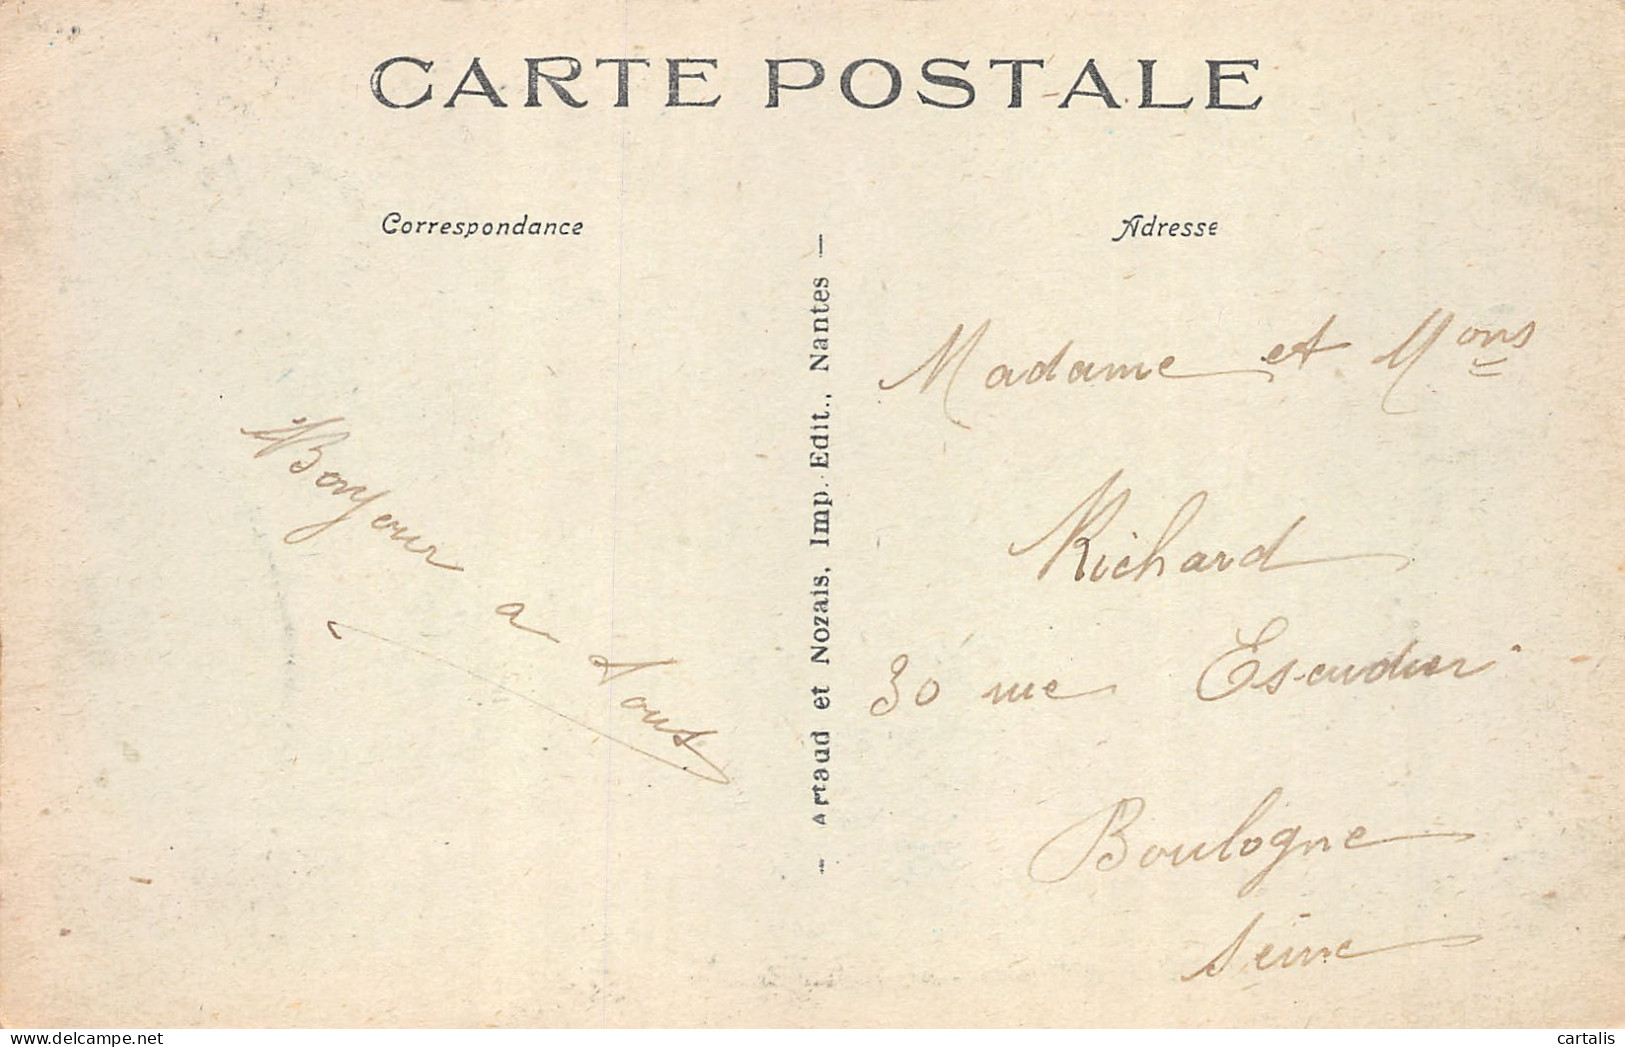 CARTE POSTALE
Correspondance
Bonjour
a
tous
— Artaud et Nozais, Imp. Edit., Nantes —
Adresse
Madame et Mons
Richard
30 rue Escudier
Boulogne
Seine
cartalis